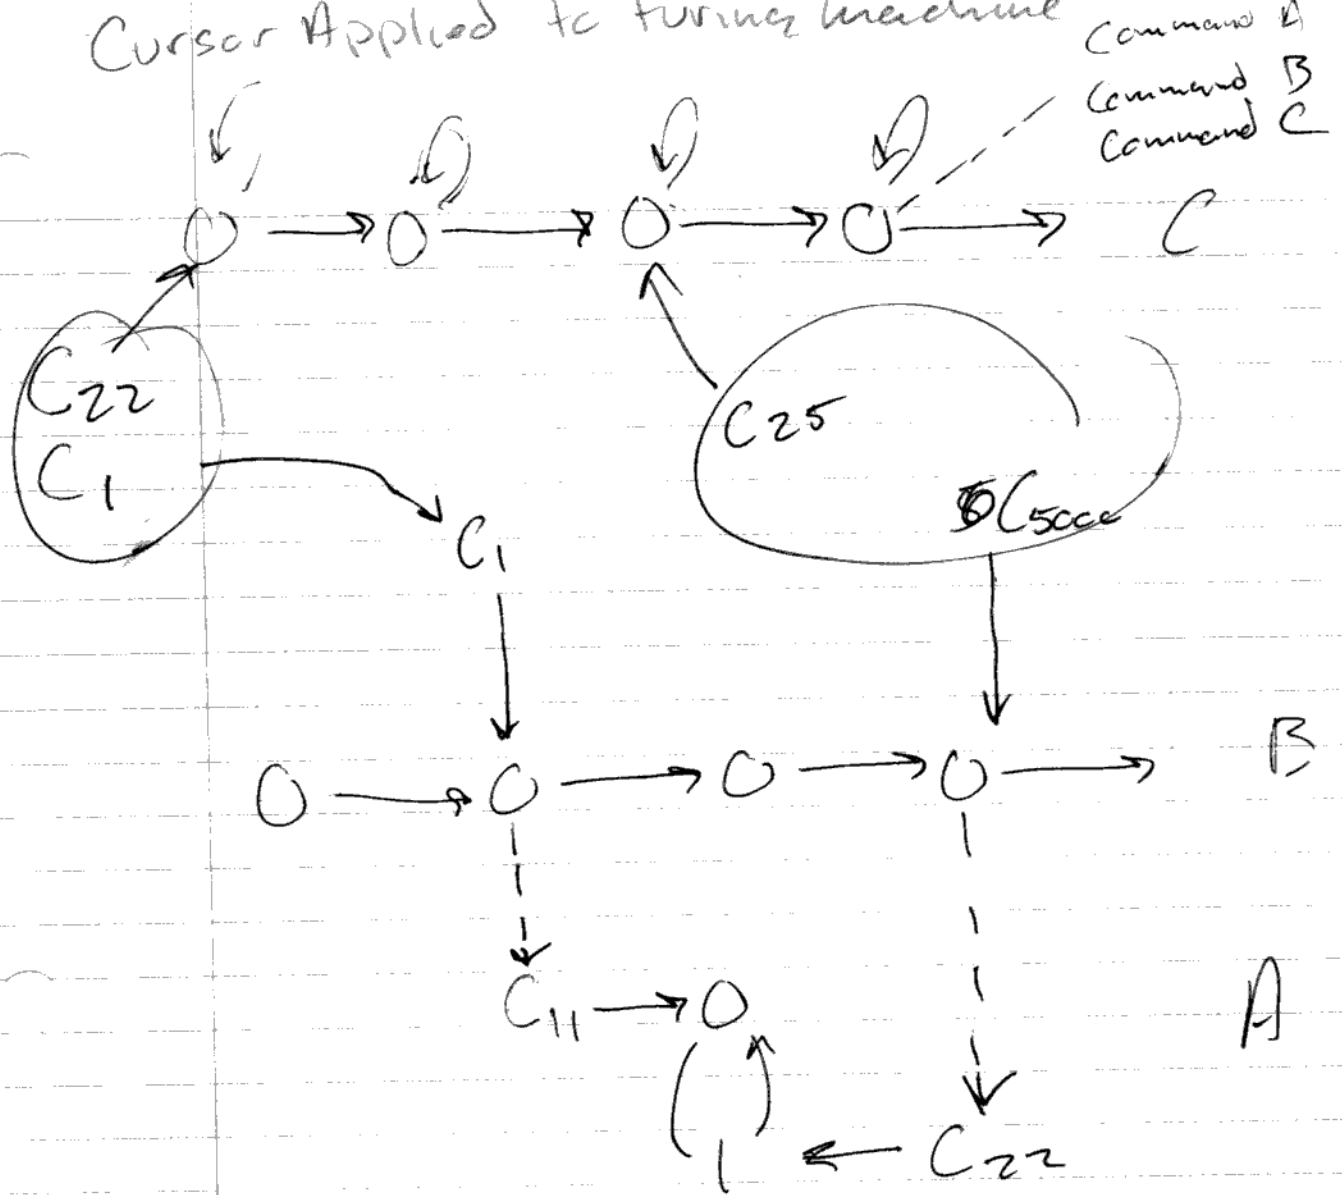 Cursor Applied to turing machine
Command A
Command B
Command C
O O O O C
C22
C1
C25
C5000
C1
O O O O B
C11 O A
1 C22